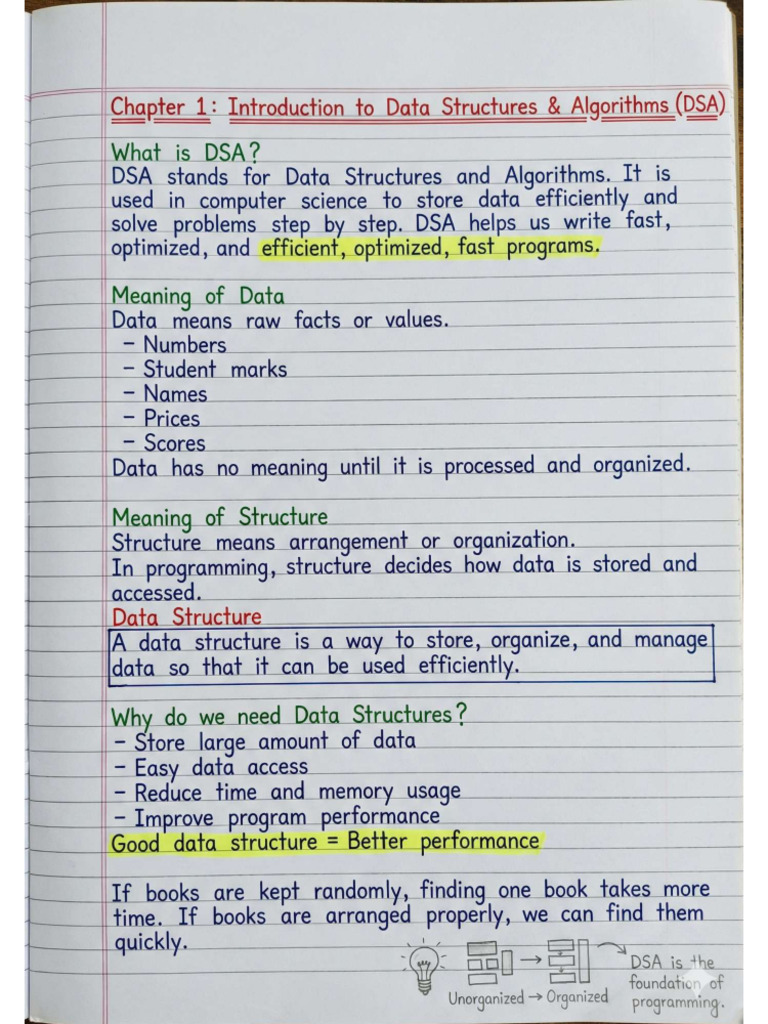 Chapter 1: Introduction to Data Structures & Algorithms (DSA)
What is DSA?
DSA stands for Data Structures and Algorithms. It is
used in computer science to store data efficiently and
solve problems step by step. DSA helps us write fast,
optimized, and efficient, optimized, fast programs.
Meaning of Data
Data means raw facts or values.
– Numbers
– Student marks
– Names
– Prices
– Scores
Data has no meaning until it is processed and organized.
Meaning of Structure
Structure means arrangement or organization.
In programming, structure decides how data is stored and
accessed.
Data Structure
A data structure is a way to store, organize, and manage
data so that it can be used efficiently.
Why do we need Data Structures?
– Store large amount of data
– Easy data access
– Reduce time and memory usage
– Improve program performance
Good data structure = Better performance
If books are kept randomly, finding one book takes more
time. If books are arranged properly, we can find them
quickly.
Unorganized → Organized
DSA is the
foundation of
programming.